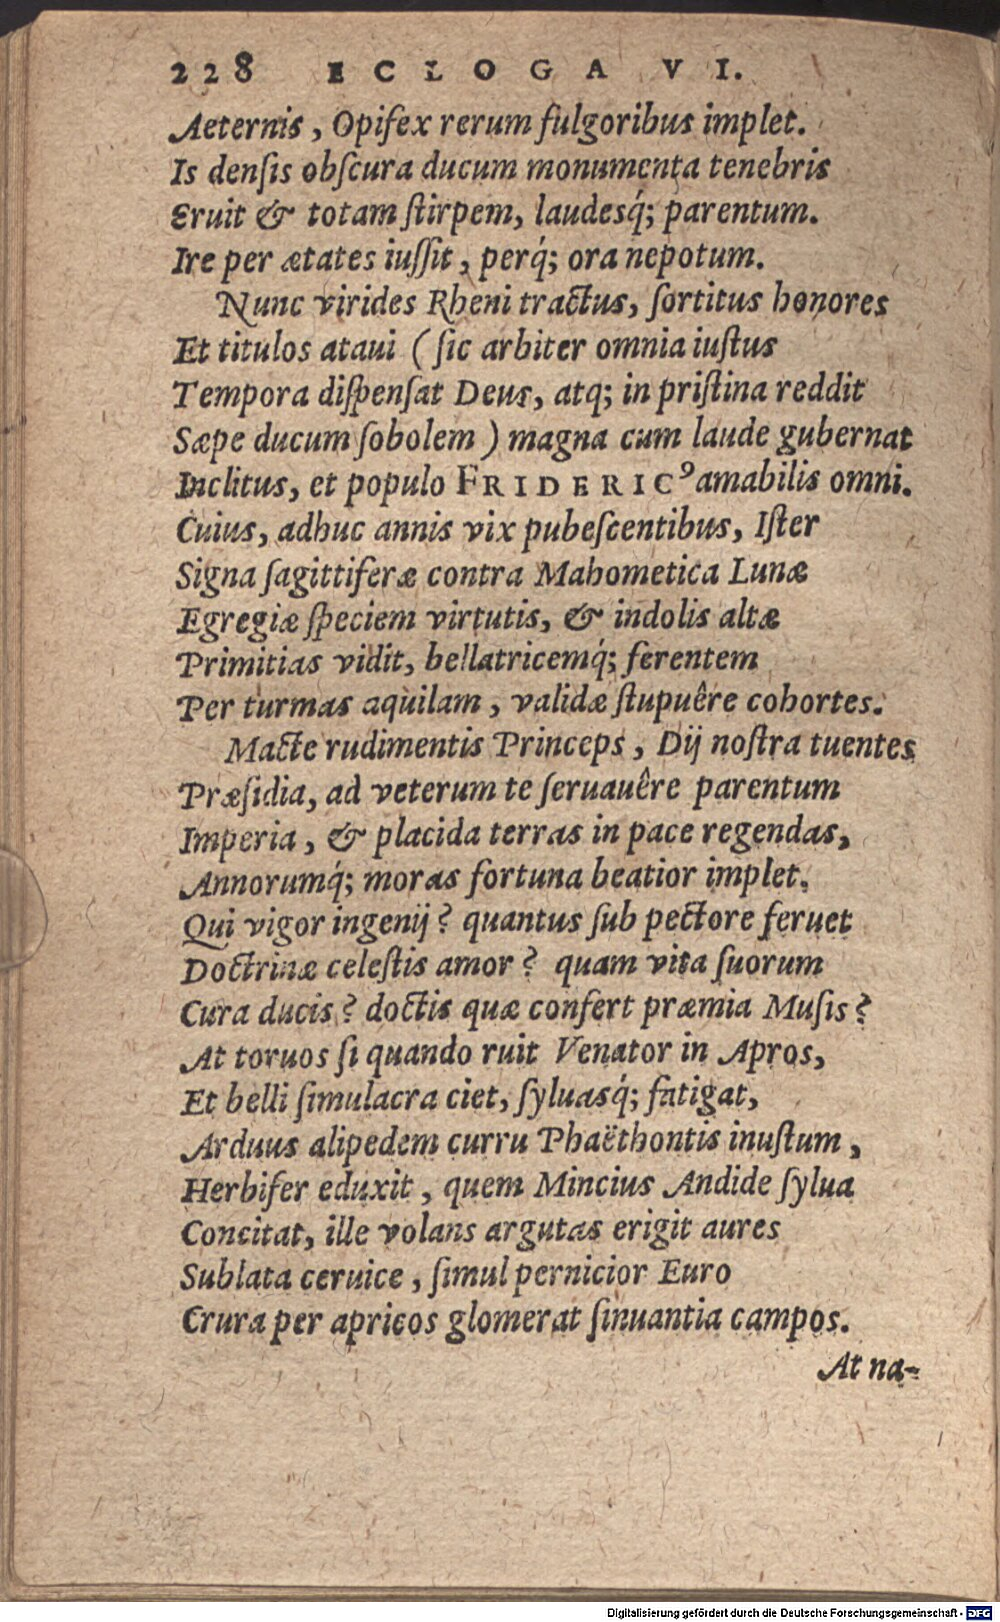 228 ECLOGA VI.
Aeternis, Opifex rerum fulgoribus implet.
Is denſis obſcura ducum monumenta tenebris
Eruit & totam ſtirpem, laudesq́; parentum.
Ire per ætates iuſſit, perq́; ora nepotum.
Nunc virides Rheni tractus, ſortitus honores
Et titulos ataui (ſic arbiter omnia iuſtus
Tempora diſpenſat Deus, atq; in priſtina reddit
Sæpe ducum ſobolem) magna cum laude gubernat
Inclitus, et populo FRIDERICꝰ amabilis omni.
Cuius, adhuc annis vix pubeſcentibus, Iſter
Signa ſagittiferæ contra Mahometica Lunæ
Egregiæ ſpeciem virtutis, & indolis altæ
Primitias vidit, bellatricemq́; ferentem
Per turmas aquilam, validæ ſtupuêre cohortes.
Macte rudimentis Princeps, Dij noſtra tuentes
Præſidia, ad veterum te ſeruauêre parentum
Imperia, & placida terras in pace regendas,
Annorumq́; moras fortuna beatior implet.
Qui vigor ingenij? quantus ſub pectore feruet
Doctrinæ celeſtis amor? quam vita ſuorum
Cura ducis? doctis quæ confert præmia Muſis?
At toruos ſi quando ruit Venator in Apros,
Et belli ſimulacra ciet, ſyluasq́; fatigat,
Arduus alipedem curru Phaëthontis inuſtum,
Herbifer eduxit, quem Mincius Andide ſylua
Concitat, ille volans argutas erigit aures
Sublata ceruice, ſimul pernicior Euro
Crura per apricos glomerat ſinuantia campos.
At na-
Digitalisierung gefördert durch die Deutsche Forschungsgemeinschaft - DFG